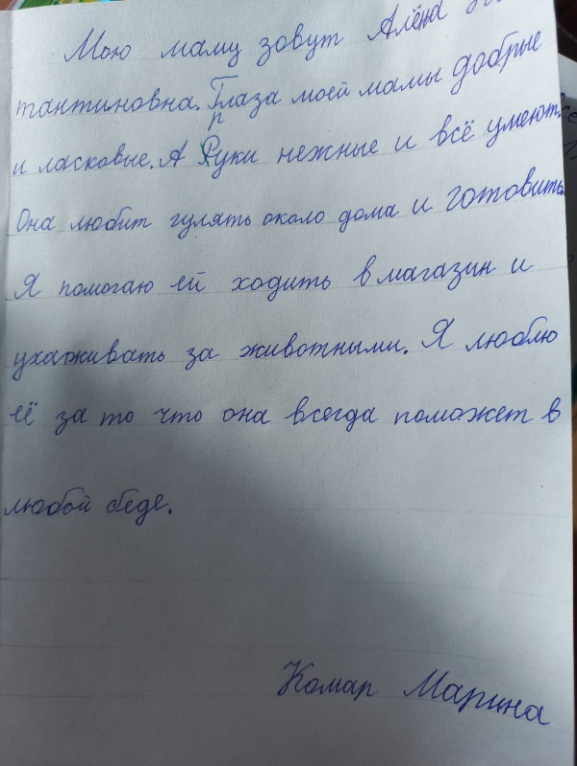 Мою маму зовут Алёна
тантиновна. Глаза моей мамы добрые
и ласковые. А руки нежные и всё умеют.
Она любит гулять около дома и готовить.
Я помогаю ей ходить в магазин и
ухаживать за животными. Я люблю
её за то что она всегда поможет в
любой беде.
Комар Марина